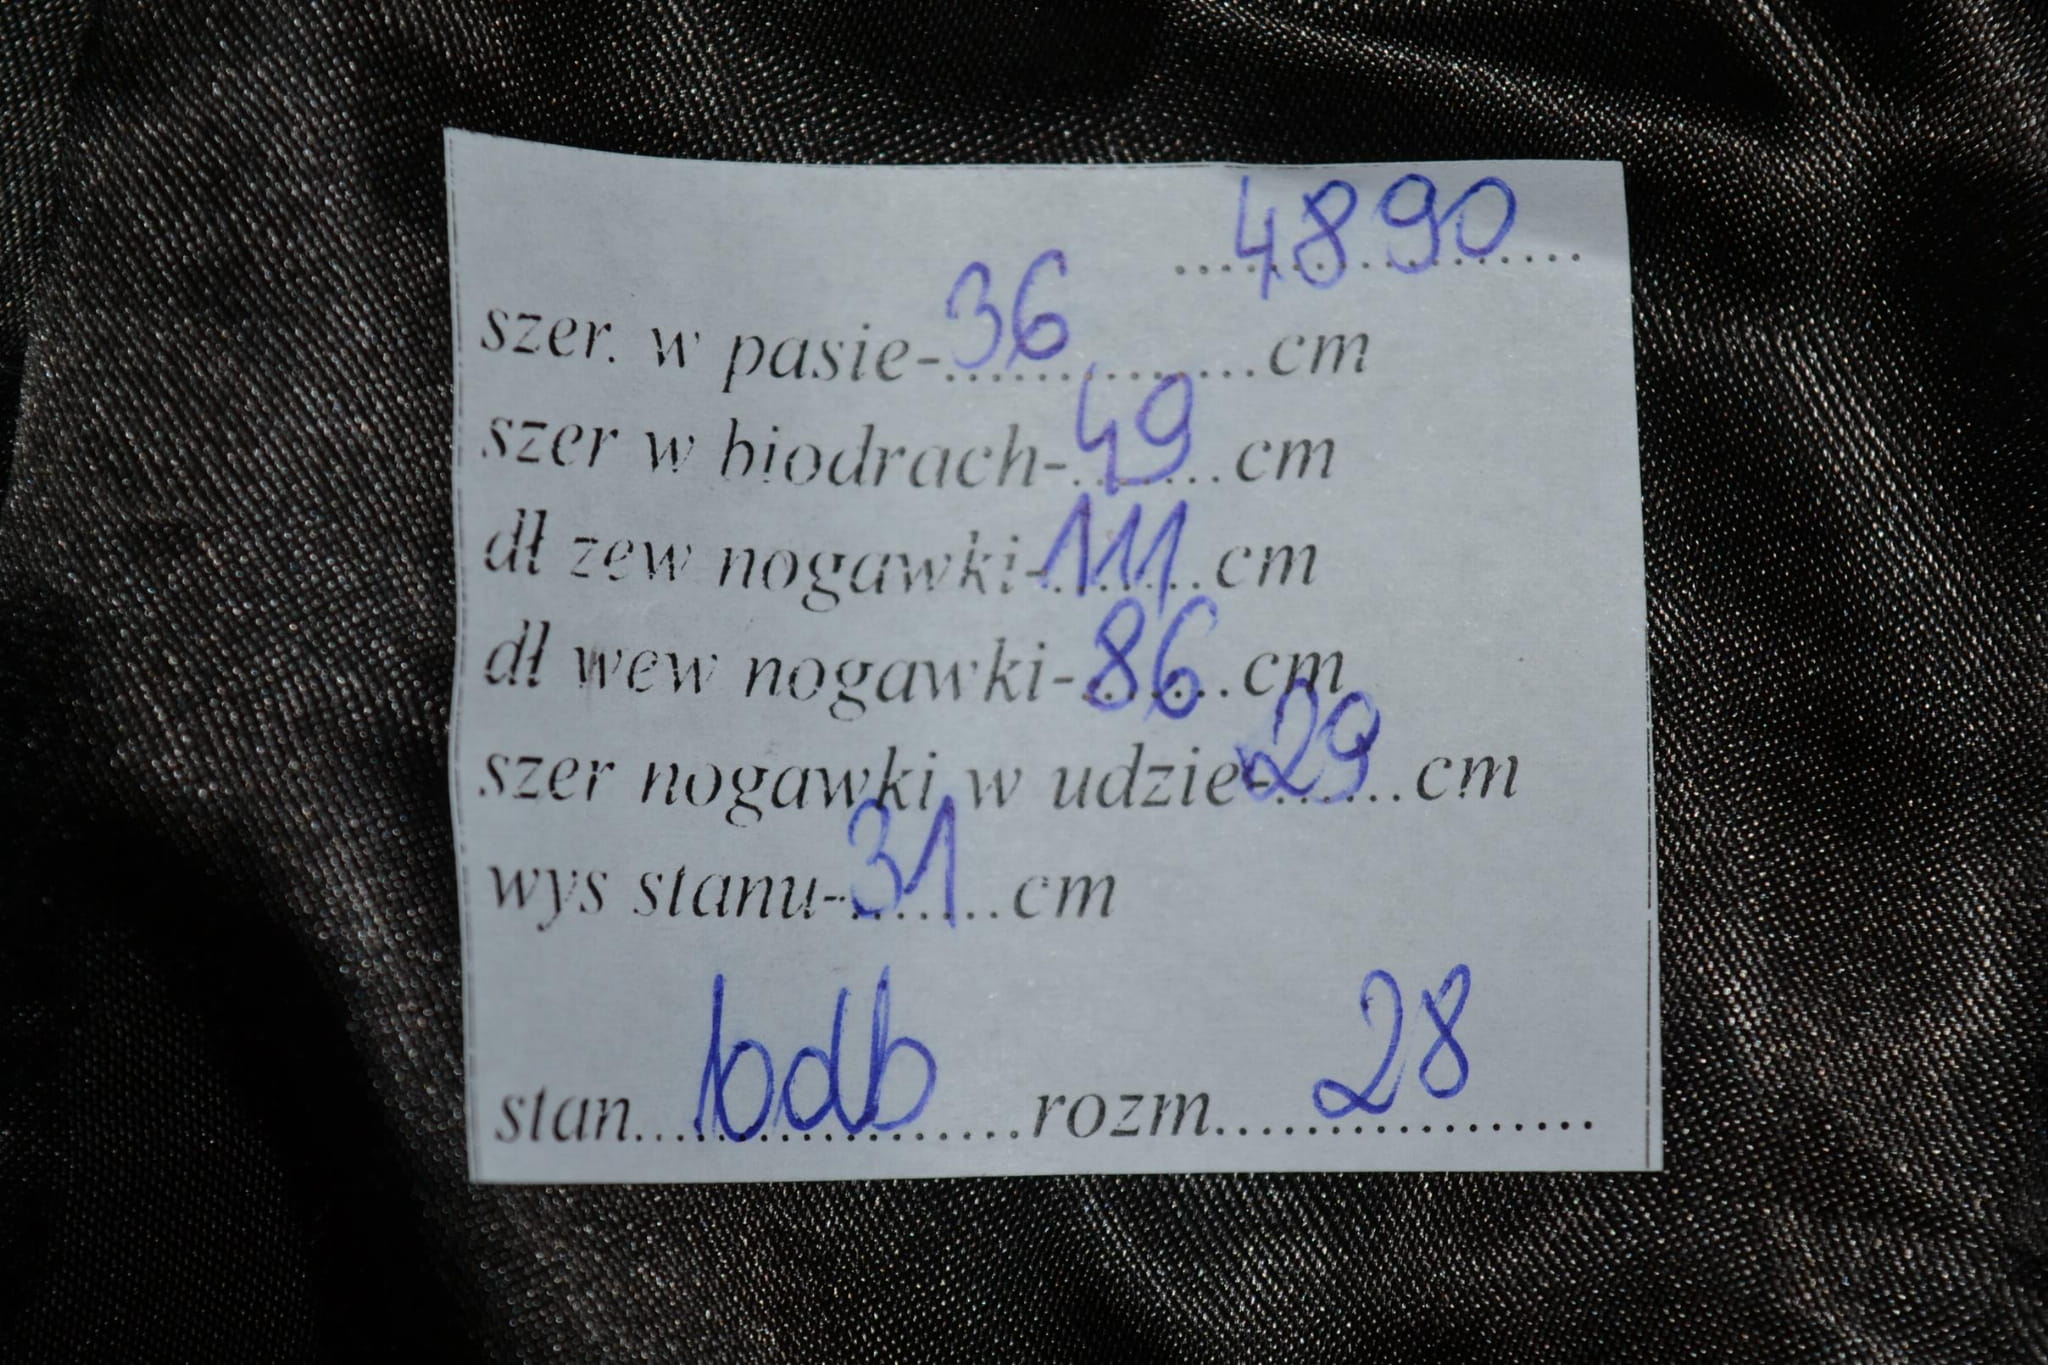 4890
szer. w pasie-36..............cm
szer w biodrach-49.......cm
dł zew nogawki-111.......cm
dł wew nogawki-86.......cm
szer nogawki w udzie-29......cm
wys stanu-31.......cm
stan....bdb....rozm....28....